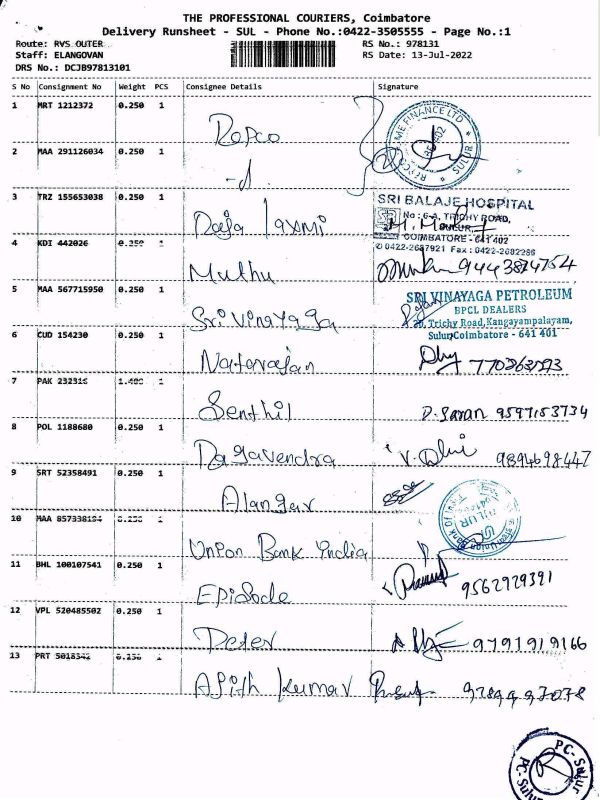 THE PROFESSIONAL COURIERS, Coimbatore
Delivery Runsheet - SUL - Phone No.:0422-3505555 - Page No.:1
Route: RVS OUTER RS No.: 978131
Staff: ELANGOVAN RS Date: 13-Jul-2022
DRS No.: DCJB97813101
S No Consignment No Weight PCS Consignee Details Signature
1 MRT 1212372 0.250 1 Repco
2 MAA 291126034 0.250 1
3 TRZ 155653038 0.250 1 Raja laxmi
SRI BALAJE HOSPITAL
No: 6-A, TRICHY ROAD,
SULUR,
COIMBATORE - 641 402
0422-2687921 Fax: 0422-2682286
4 KDI 442026 0.250 1 Muthu
5 MAA 567715950 0.250 1 Sri Vinayaga
SRI VINAYAGA PETROLEUM
BPCL DEALERS
Trichy Road, Kangayampalayam,
Sulur, Coimbatore - 641 401
6 CUD 154230 0.250 1 Natarajan
7 PAK 1 Senthil D. Saran 9597153734
8 POL 1188680 0.250 1 Ragavendra 9894698447
9 SRT 52358491 0.250 1 Alangar
10 MAA Union Bank India
11 BHL 100107541 0.250 1 Episode 9562929391
12 VPL 520485502 0.250 1 Peter 9791919166
13 PRT Ajith Kumar
PC-Sulur